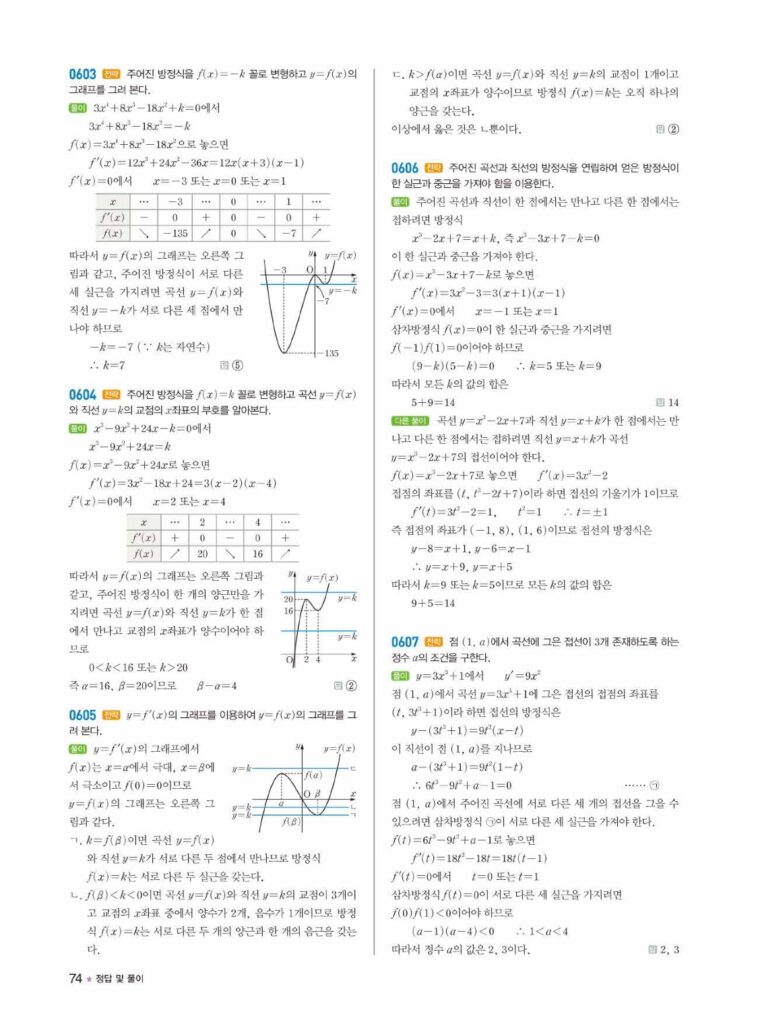 0603 전략 주어진 방정식을 f(x)=-k 꼴로 변형하고 y=f(x)의
그래프를 그려 본다.
풀이 3x⁴+8x³-18x²+k=0에서
3x⁴+8x³-18x²=-k
f(x)=3x⁴+8x³-18x²으로 놓으면
f'(x)=12x³+24x²-36x=12x(x+3)(x-1)
f'(x)=0에서 x=-3 또는 x=0 또는 x=1
x … -3 … 0 … 1 …
f'(x) - 0 + 0 - 0 +
f(x) ↘ -135 ↗ 0 ↘ -7 ↗
따라서 y=f(x)의 그래프는 오른쪽 그
림과 같고, 주어진 방정식이 서로 다른
세 실근을 가지려면 곡선 y=f(x)와
직선 y=-k가 서로 다른 세 점에서 만
나야 하므로
-k=-7 (∵ k는 자연수)
∴ k=7 답 ⑤
y y=f(x)
-3 O 1 x
y=-k
-7
-135
0604 전략 주어진 방정식을 f(x)=k 꼴로 변형하고 곡선 y=f(x)
와 직선 y=k의 교점의 x좌표의 부호를 알아본다.
풀이 x³-9x²+24x-k=0에서
x³-9x²+24x=k
f(x)=x³-9x²+24x로 놓으면
f'(x)=3x²-18x+24=3(x-2)(x-4)
f'(x)=0에서 x=2 또는 x=4
x … 2 … 4 …
f'(x) + 0 - 0 +
f(x) ↗ 20 ↘ 16 ↗
따라서 y=f(x)의 그래프는 오른쪽 그림과
같고, 주어진 방정식이 한 개의 양근만을 가
지려면 곡선 y=f(x)와 직선 y=k가 한 점
에서 만나고 교점의 x좌표가 양수이어야 하
므로
0<k<16 또는 k>20
즉 α=16, β=20이므로 β-α=4 답 ②
y y=f(x)
y=k
20
16
y=k
O 2 4 x
0605 전략 y=f'(x)의 그래프를 이용하여 y=f(x)의 그래프를 그
려 본다.
풀이 y=f'(x)의 그래프에서
f(x)는 x=α에서 극대, x=β에
서 극소이고 f(0)=0이므로
y=f(x)의 그래프는 오른쪽 그
림과 같다.
y y=f(x)
y=k ㄷ
f(α)
O β x
α
y=k ㄴ
y=k ㄱ
f(β)
ㄱ. k=f(β)이면 곡선 y=f(x)
와 직선 y=k가 서로 다른 두 점에서 만나므로 방정식
f(x)=k는 서로 다른 두 실근을 갖는다.
ㄴ. f(β)<k<0이면 곡선 y=f(x)와 직선 y=k의 교점이 3개이
고 교점의 x좌표 중에서 양수가 2개, 음수가 1개이므로 방정
식 f(x)=k는 서로 다른 두 개의 양근과 한 개의 음근을 갖는
다.
74 ★ 정답 및 풀이
ㄷ. k>f(α)이면 곡선 y=f(x)와 직선 y=k의 교점이 1개이고
교점의 x좌표가 양수이므로 방정식 f(x)=k는 오직 하나의
양근을 갖는다.
이상에서 옳은 것은 ㄴ뿐이다. 답 ②
0606 전략 주어진 곡선과 직선의 방정식을 연립하여 얻은 방정식이
한 실근과 중근을 가져야 함을 이용한다.
풀이 주어진 곡선과 직선이 한 점에서는 만나고 다른 한 점에서는
접하려면 방정식
x³-2x+7=x+k, 즉 x³-3x+7-k=0
이 한 실근과 중근을 가져야 한다.
f(x)=x³-3x+7-k로 놓으면
f'(x)=3x²-3=3(x+1)(x-1)
f'(x)=0에서 x=-1 또는 x=1
삼차방정식 f(x)=0이 한 실근과 중근을 가지려면
f(-1)f(1)=0이어야 하므로
(9-k)(5-k)=0 ∴ k=5 또는 k=9
따라서 모든 k의 값의 합은
5+9=14 답 14
다른 풀이 곡선 y=x³-2x+7과 직선 y=x+k가 한 점에서는 만
나고 다른 한 점에서는 접하려면 직선 y=x+k가 곡선
y=x³-2x+7의 접선이어야 한다.
f(x)=x³-2x+7로 놓으면 f'(x)=3x²-2
접점의 좌표를 (t, t³-2t+7)이라 하면 접선의 기울기가 1이므로
f'(t)=3t²-2=1, t²=1 ∴ t=±1
즉 접점의 좌표가 (-1, 8), (1, 6)이므로 접선의 방정식은
y-8=x+1, y-6=x-1
∴ y=x+9, y=x+5
따라서 k=9 또는 k=5이므로 모든 k의 값의 합은
9+5=14
0607 전략 점 (1, a)에서 곡선에 그은 접선이 3개 존재하도록 하는
정수 a의 조건을 구한다.
풀이 y=3x³+1에서 y'=9x²
점 (1, a)에서 곡선 y=3x³+1에 그은 접선의 접점의 좌표를
(t, 3t³+1)이라 하면 접선의 방정식은
y-(3t³+1)=9t²(x-t)
이 직선이 점 (1, a)를 지나므로
a-(3t³+1)=9t²(1-t)
∴ 6t³-9t²+a-1=0 …… ㉠
점 (1, a)에서 주어진 곡선에 서로 다른 세 개의 접선을 그을 수
있으려면 삼차방정식 ㉠이 서로 다른 세 실근을 가져야 한다.
f(t)=6t³-9t²+a-1로 놓으면
f'(t)=18t²-18t=18t(t-1)
f'(t)=0에서 t=0 또는 t=1
삼차방정식 f(t)=0이 서로 다른 세 실근을 가지려면
f(0)f(1)<0이어야 하므로
(a-1)(a-4)<0 ∴ 1<a<4
따라서 정수 a의 값은 2, 3이다. 답 2, 3